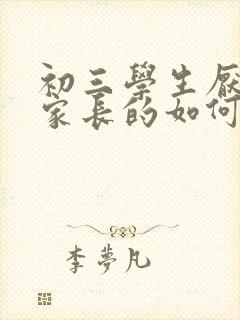 初三學生厭
家長的如何
李夢凡